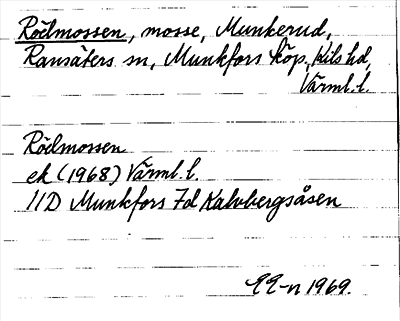 Rödmossen, mosse, Munkerud,
Ransäters sn, Munkfors köp., Kils hd,
Värml. l.
Rödmossen
ek (1968) Värml. l.
11D Munkfors 7d Kalvbergsåsen
1969.